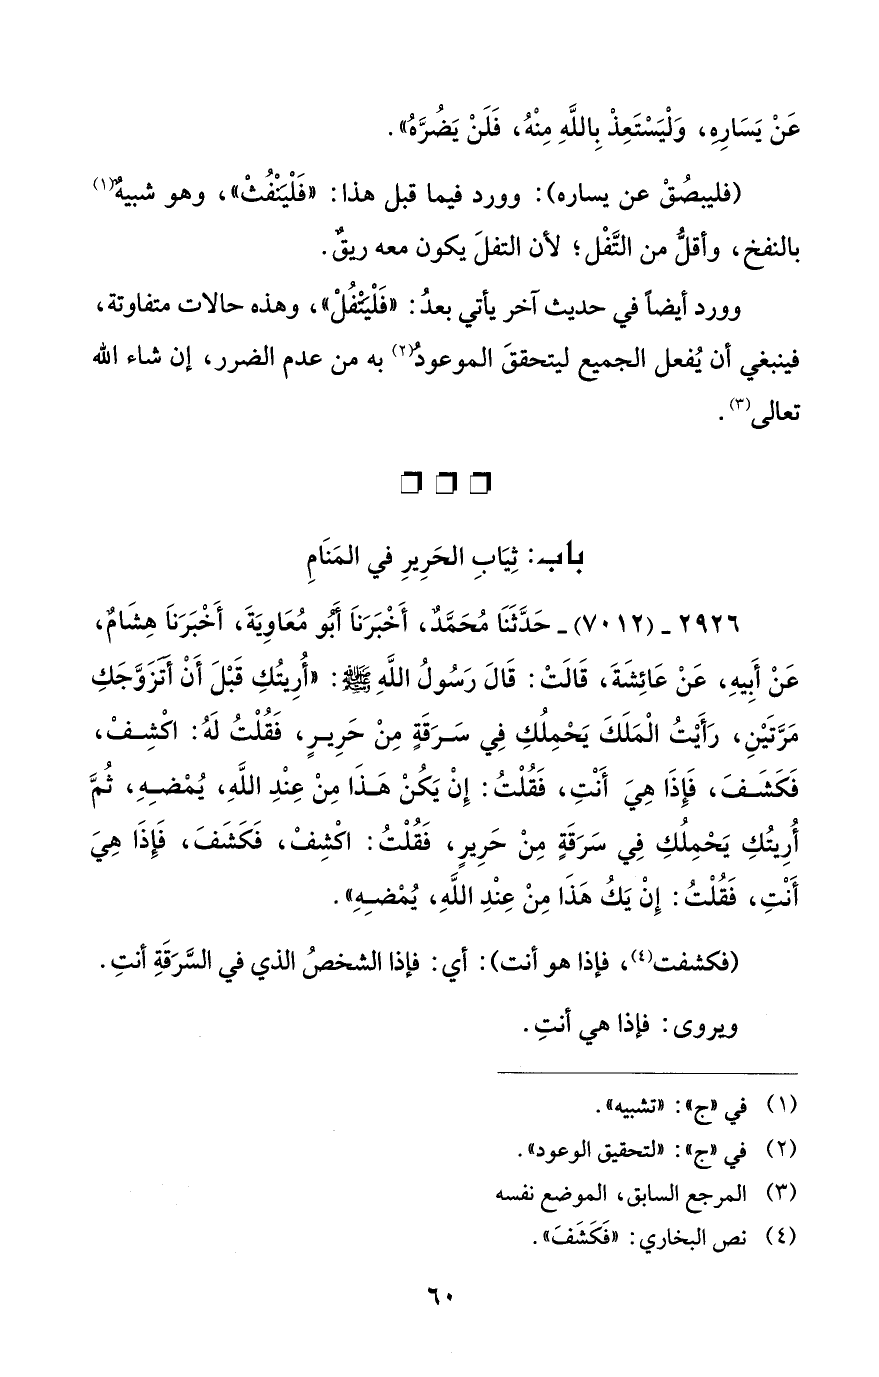 عَنْ يَسَارِهِ، وَلْيَسْتَعِذْ بِاللَّهِ مِنْهُ، فَلَنْ يَضُرَّهُ».
(فليبصُقْ عن يساره): وورد فيما قبل هذا: «فَلْيَنْفُثْ»، وهو شبيهٌ(١)
بالنفخ، وأقلُّ من التَّفْل؛ لأن التفلَ يكون معه ريقٌ.
وورد أيضاً في حديث آخر يأتي بعدُ: «فَلْيَتْفُلْ»، وهذه حالات متفاوتة،
فينبغي أن يُفعل الجميع ليتحققَ الموعودُ(٢) به من عدم الضرر، إن شاء الله
تعالى(٣).
❒ ❒ ❒
باب: ثِيَابِ الحَرِيرِ في المَنَامِ
٢٩٢٦ ـ (٧٠١٢) ـ حَدَّثَنَا مُحَمَّدٌ، أَخْبَرَنَا أَبُو مُعَاوِيَةَ، أَخْبَرَنَا هِشَامٌ،
عَنْ أَبِيهِ، عَنْ عَائِشَةَ، قَالَتْ: قَالَ رَسُولُ اللَّهِ ﷺ: «أُرِيتُكِ قَبْلَ أَنْ أَتَزَوَّجَكِ
مَرَّتَيْنِ، رَأَيْتُ الْمَلَكَ يَحْمِلُكِ فِي سَرَقَةٍ مِنْ حَرِيرٍ، فَقُلْتُ لَهُ: اكْشِفْ،
فَكَشَفَ، فَإِذَا هِيَ أَنْتِ، فَقُلْتُ: إِنْ يَكُنْ هَذَا مِنْ عِنْدِ اللَّهِ، يُمْضِهِ، ثُمَّ
أُرِيتُكِ يَحْمِلُكِ فِي سَرَقَةٍ مِنْ حَرِيرٍ، فَقُلْتُ: اكْشِفْ، فَكَشَفَ، فَإِذَا هِيَ
أَنْتِ، فَقُلْتُ: إِنْ يَكُ هَذَا مِنْ عِنْدِ اللَّهِ، يُمْضِهِ».
(فكشفت(٤)، فإذا هو أنت): أي: فإذا الشخصُ الذي في السَّرَقَةِ أنتِ.
ويروى: فإذا هي أنتِ.
(١) في «ج»: «تشبيه».
(٢) في «ج»: «لتحقيق الوعود».
(٣) المرجع السابق، الموضع نفسه
(٤) نص البخاري: «فَكَشَفَ».
٦٠